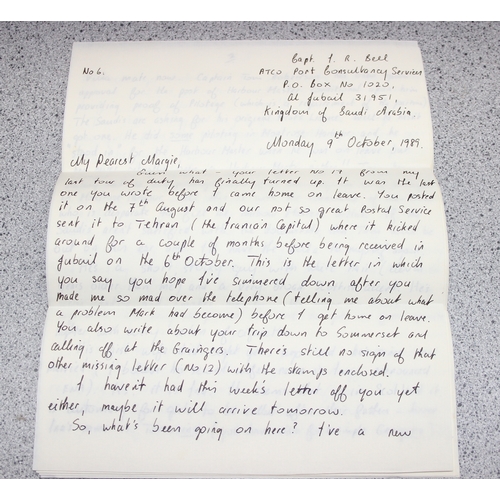 No 6.
Capt. J. R. Bell
ATCO Port Consultancy Services
P.O. Box No 1020,
Al Jubail 31951,
Kingdom of Saudi Arabia.
Monday 9th October, 1989.
My Dearest Margie,
Guess what - your letter No 14 from my
last tour of duty has finally turned up. It was the last
one you wrote before I came home on leave. You posted
it on the 7th August and our not so great Postal Service
sent it to Tehran (the Iranian Capital) where it kicked
around for a couple of months before being received in
Jubail on the 6th October. This is the letter in which
you say you hope I've simmered down after you
made me so mad over the telephone (telling me about what
a problem Mark had become) before I get home on leave.
You also write about your trip down to Sommerset and
calling off at the Graingers. There's still no sign of that
other missing letter (No 12) with the stamps enclosed.
I haven't had this week's letter off you yet
either, maybe it will arrive tomorrow.
So, what's been going on here? I've a new